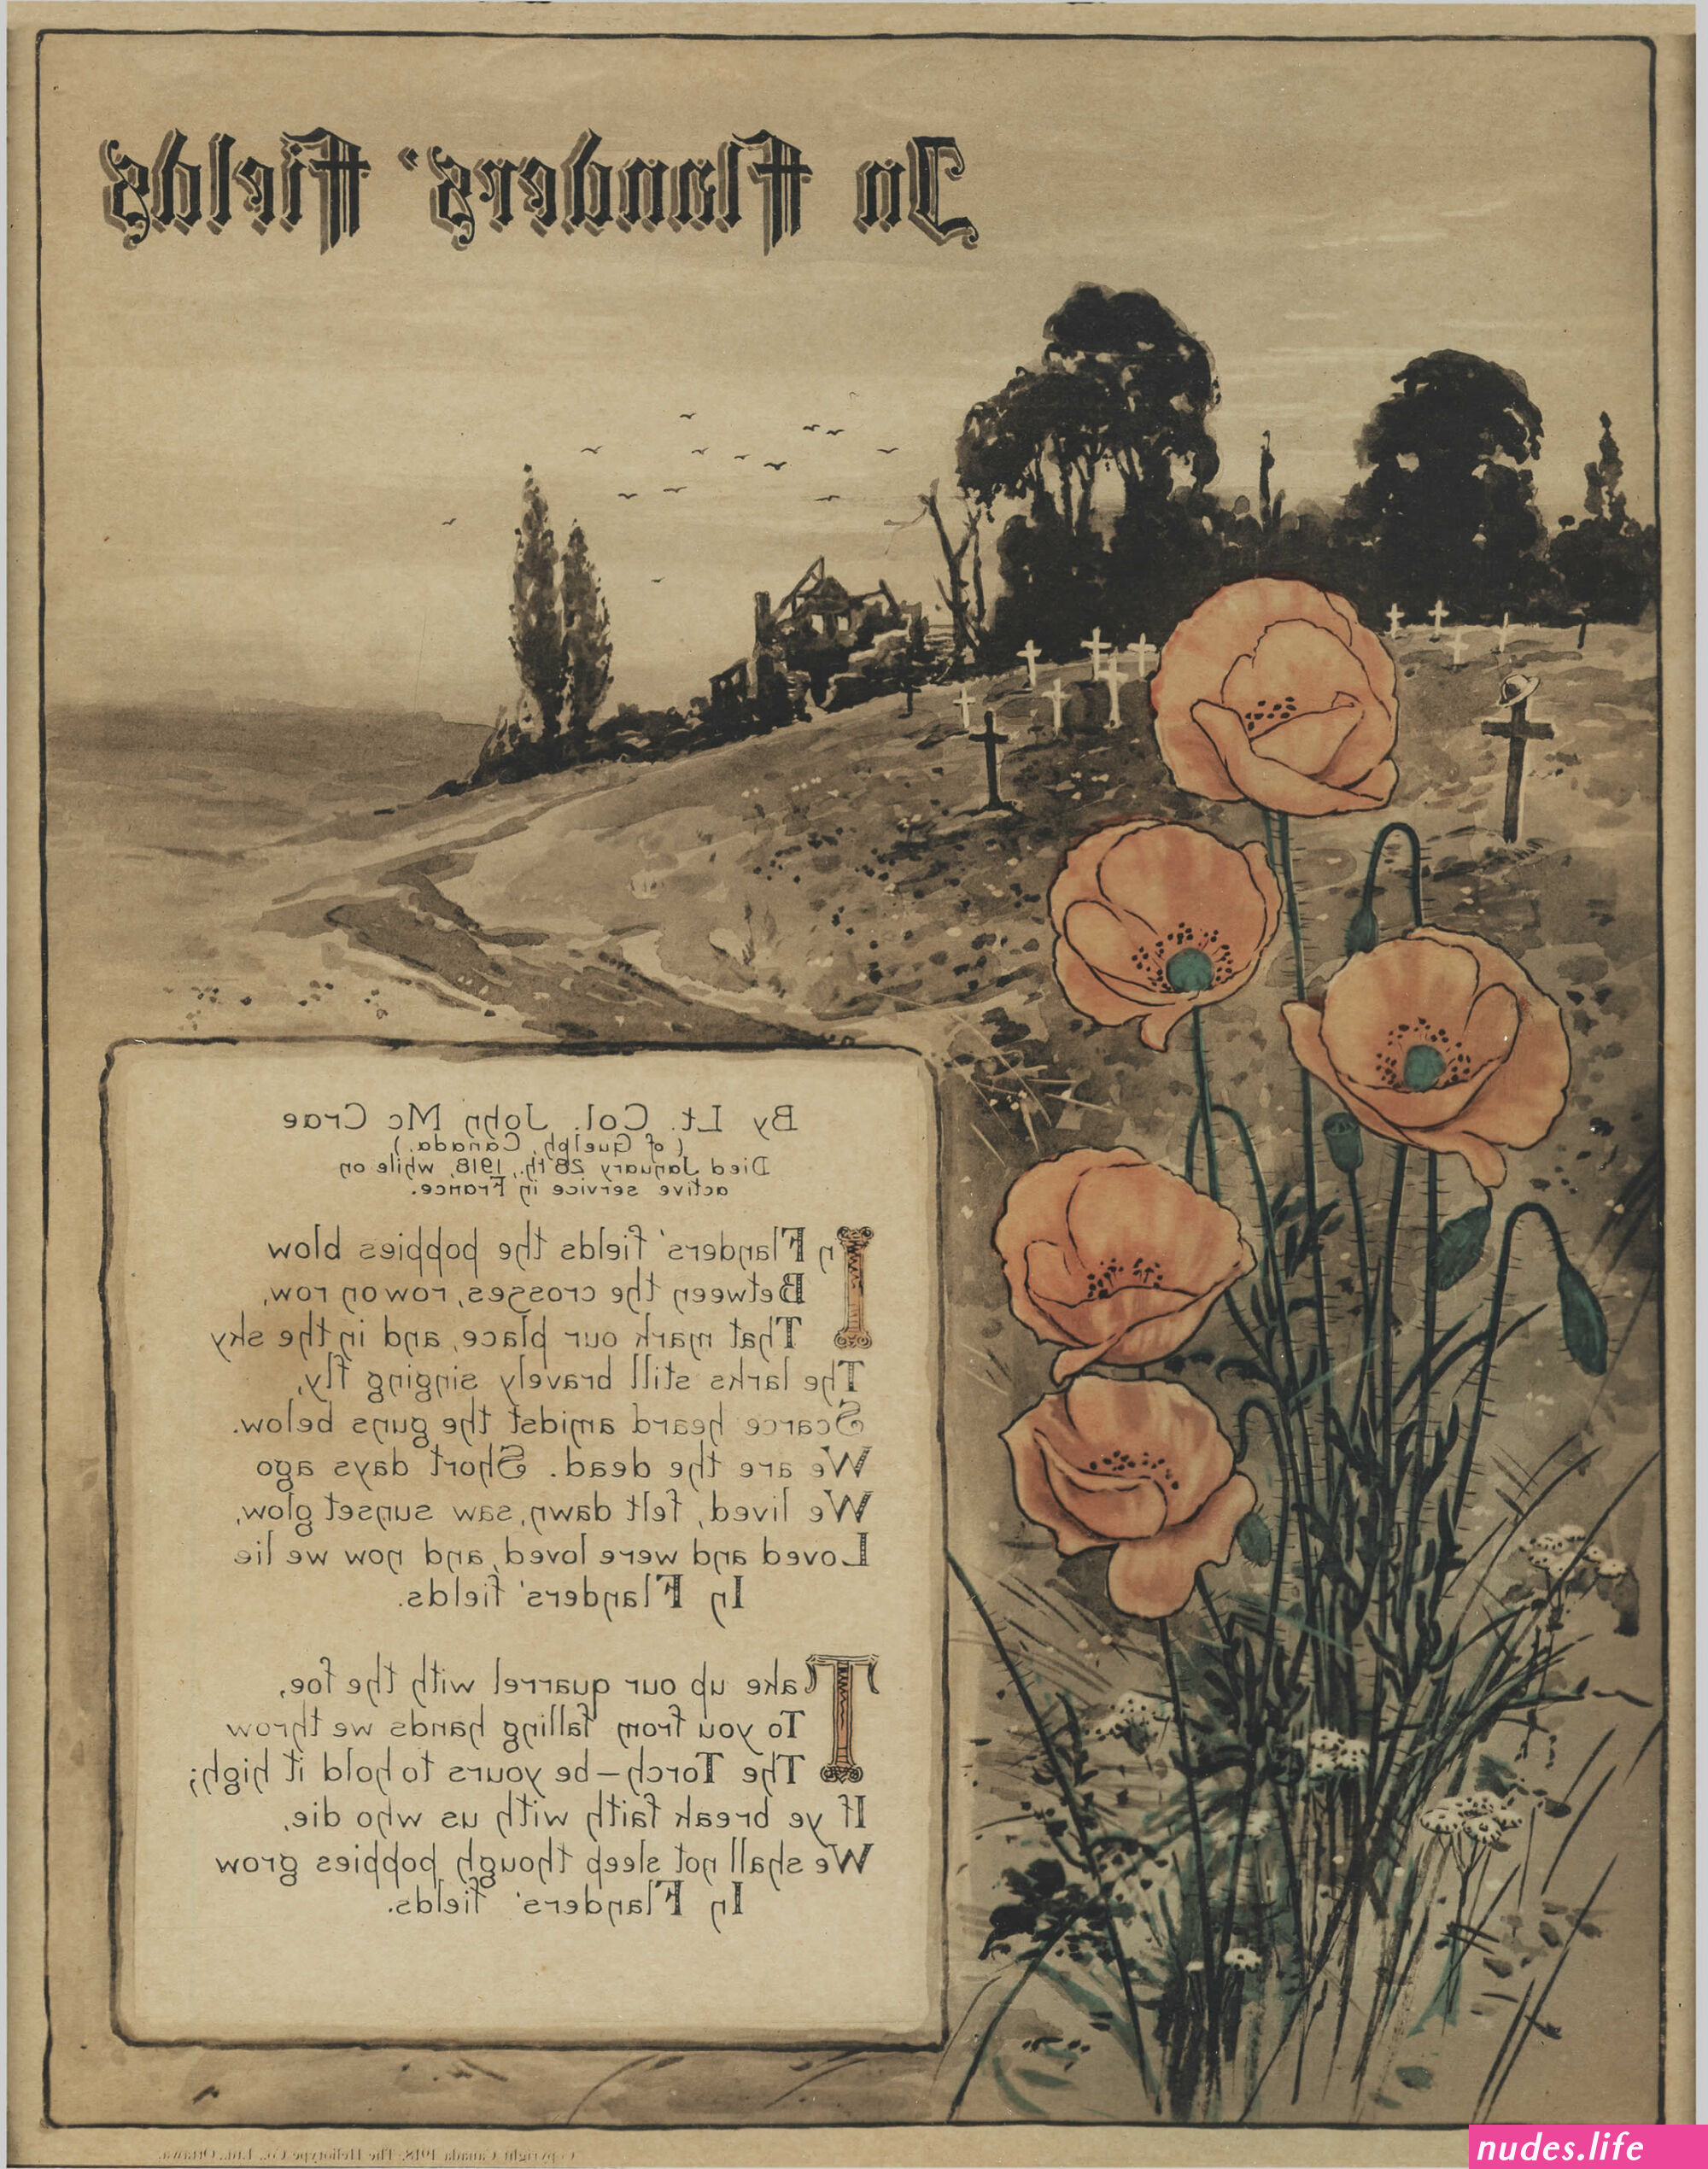 In Flanders' Fields
By Lt. Col. John Mc Crae
(of Guelph, Canada.)
Died January 28th., 1918, while on
active service in France.
In Flanders' fields the poppies blow
Between the crosses, row on row,
That mark our place, and in the sky
The larks still bravely singing fly,
Scarce heard amidst the guns below.
We are the dead. Short days ago
We lived, felt dawn, saw sunset glow,
Loved and were loved, and now we lie
In Flanders' fields.
Take up our quarrel with the foe,
To you from falling hands we throw
The Torch—be yours to hold it high;
If ye break faith with us who die,
We shall not sleep though poppies grow
In Flanders' fields.
Copyright Canada 1918; The Heliotype Co., Ltd., Ottawa.
nudes.life